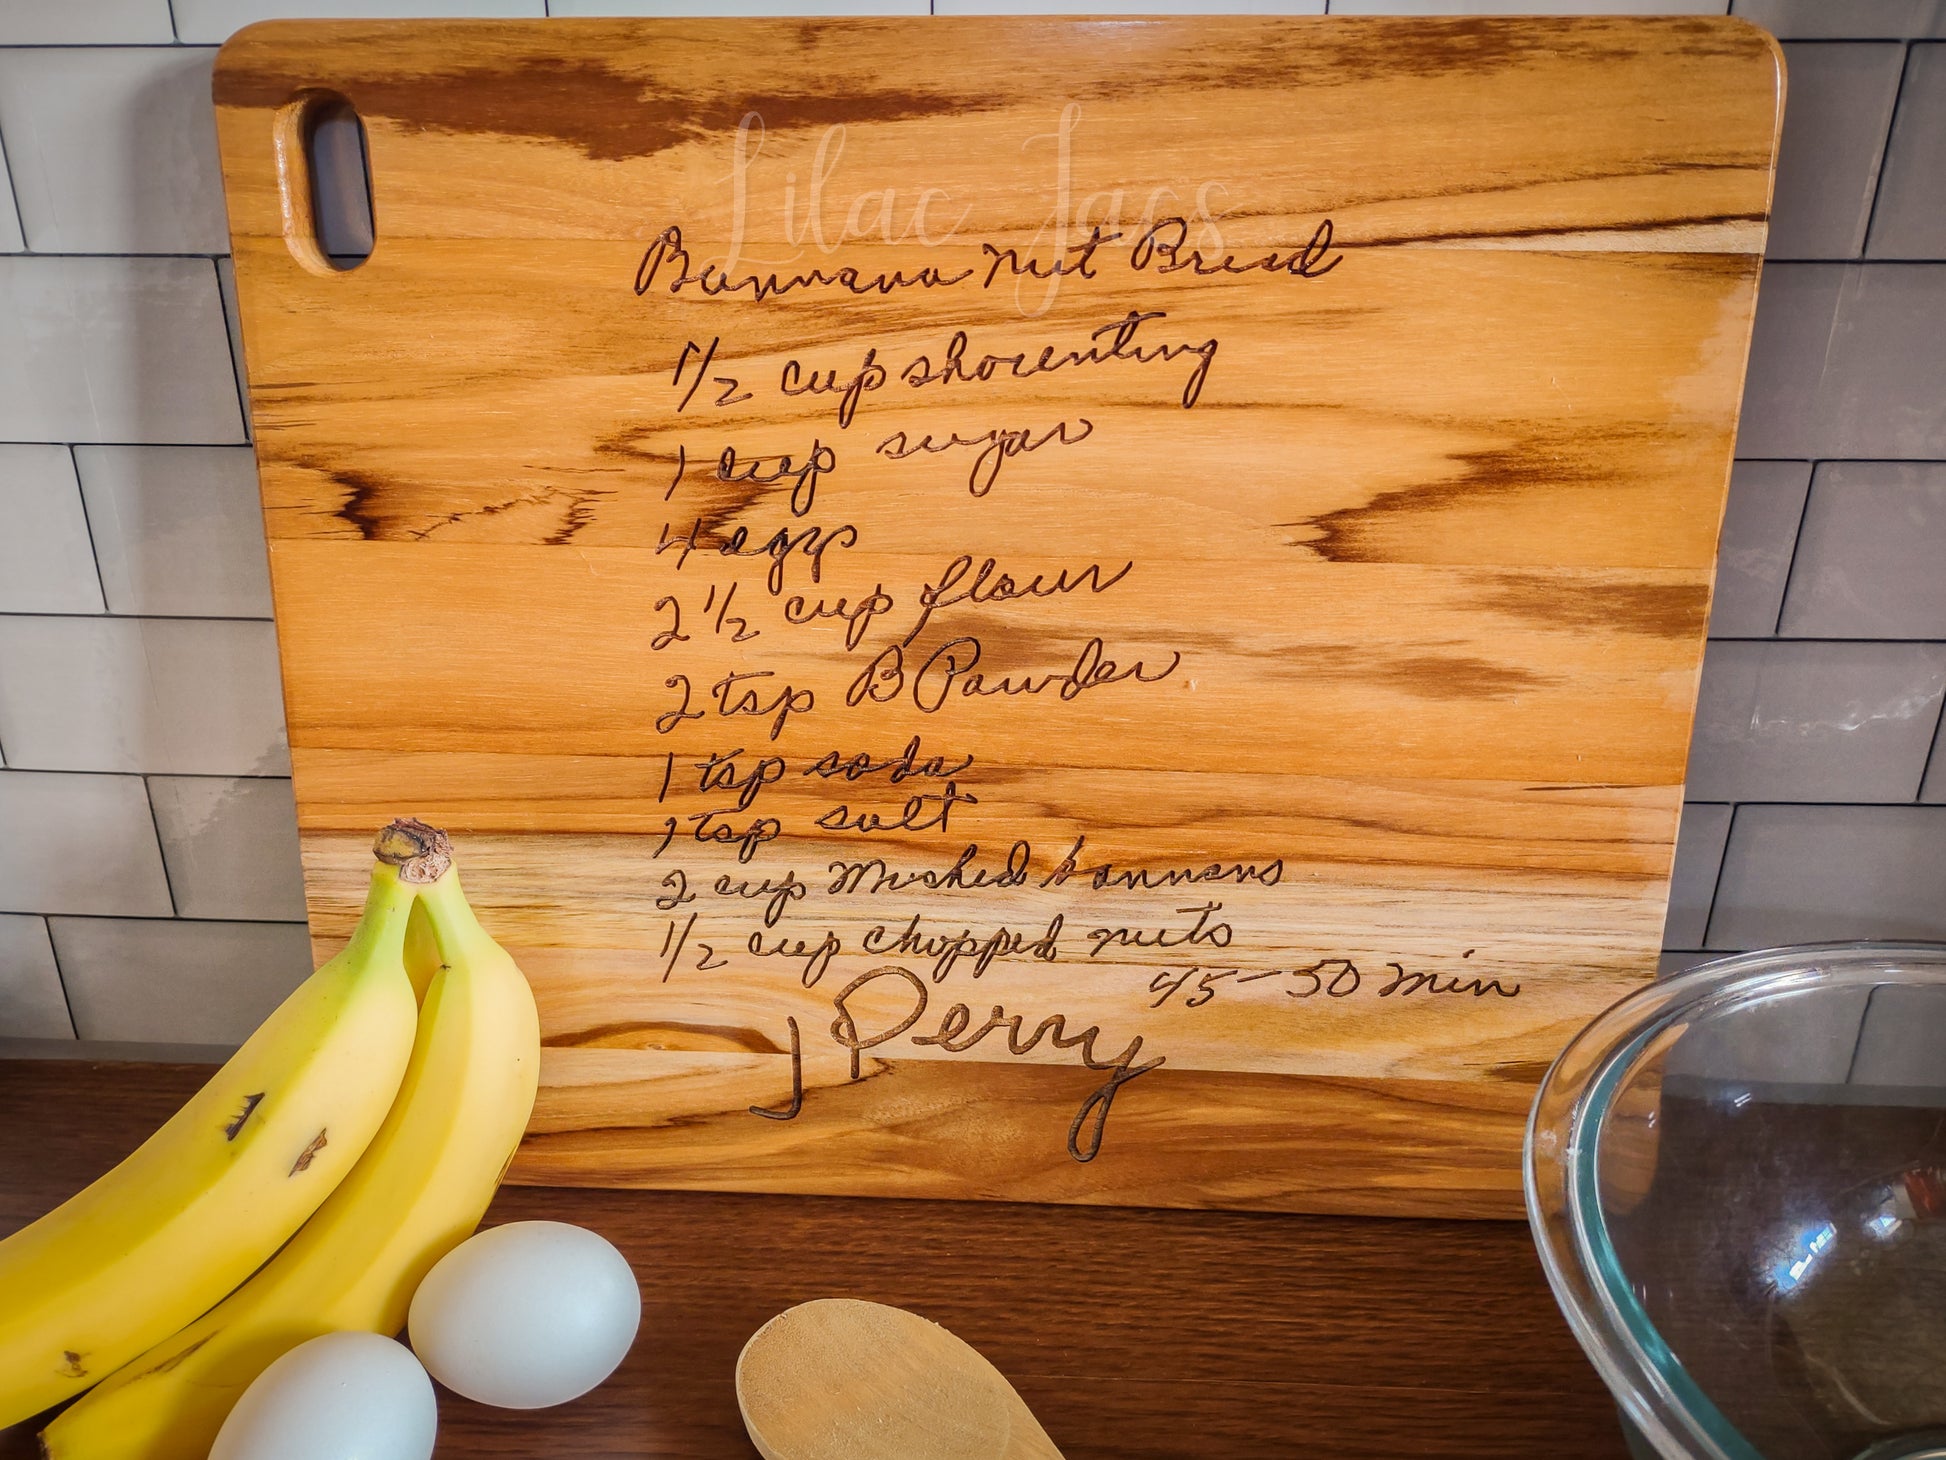 Lilac Jacs
Bannana Nut Bread
1/2 cup shorenting
1 cup sugar
4 eggs
2 1/2 cup flour
2 tsp B Powder
1 tsp soda
1 tsp salt
2 cup Mashed bannans
1/2 cup chopped nuts
45-50 min
J Perry